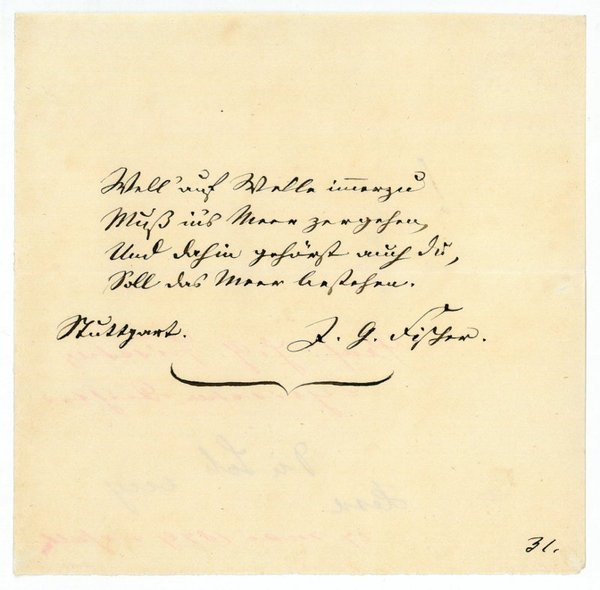 Well' auf Welle immerzu
Muß ins Meer zergehen,
Und dahin gehörst auch du,
Soll das Meer bestehen.
Stuttgart. J. G. Fischer.
31.